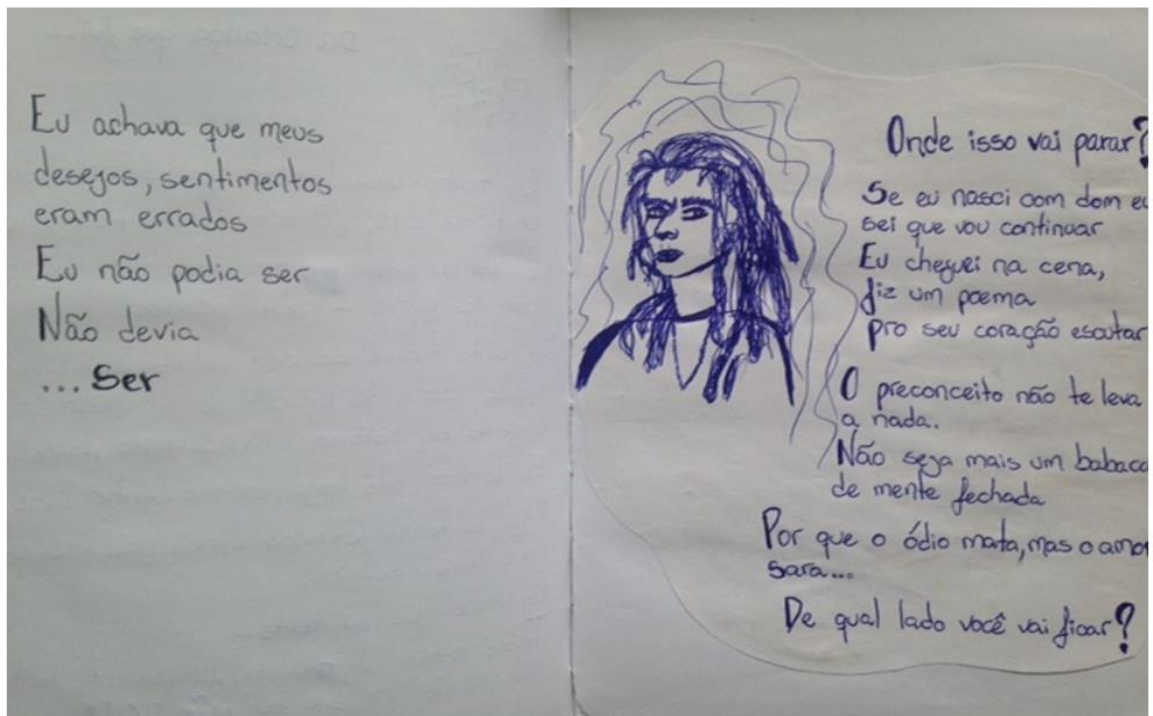 Eu achava que meus
desejos, sentimentos
eram errados
Eu não podia ser
Não devia
... Ser
Onde isso vai parar?
Se eu nasci com dom eu
sei que vou continuar
Eu cheguei na cena,
fiz um poema
pro seu coração escutar
O preconceito não te leva
a nada.
Não seja mais um babaca
de mente fechada
Por que o ódio mata, mas o amor
sara...
De qual lado você vai ficar?